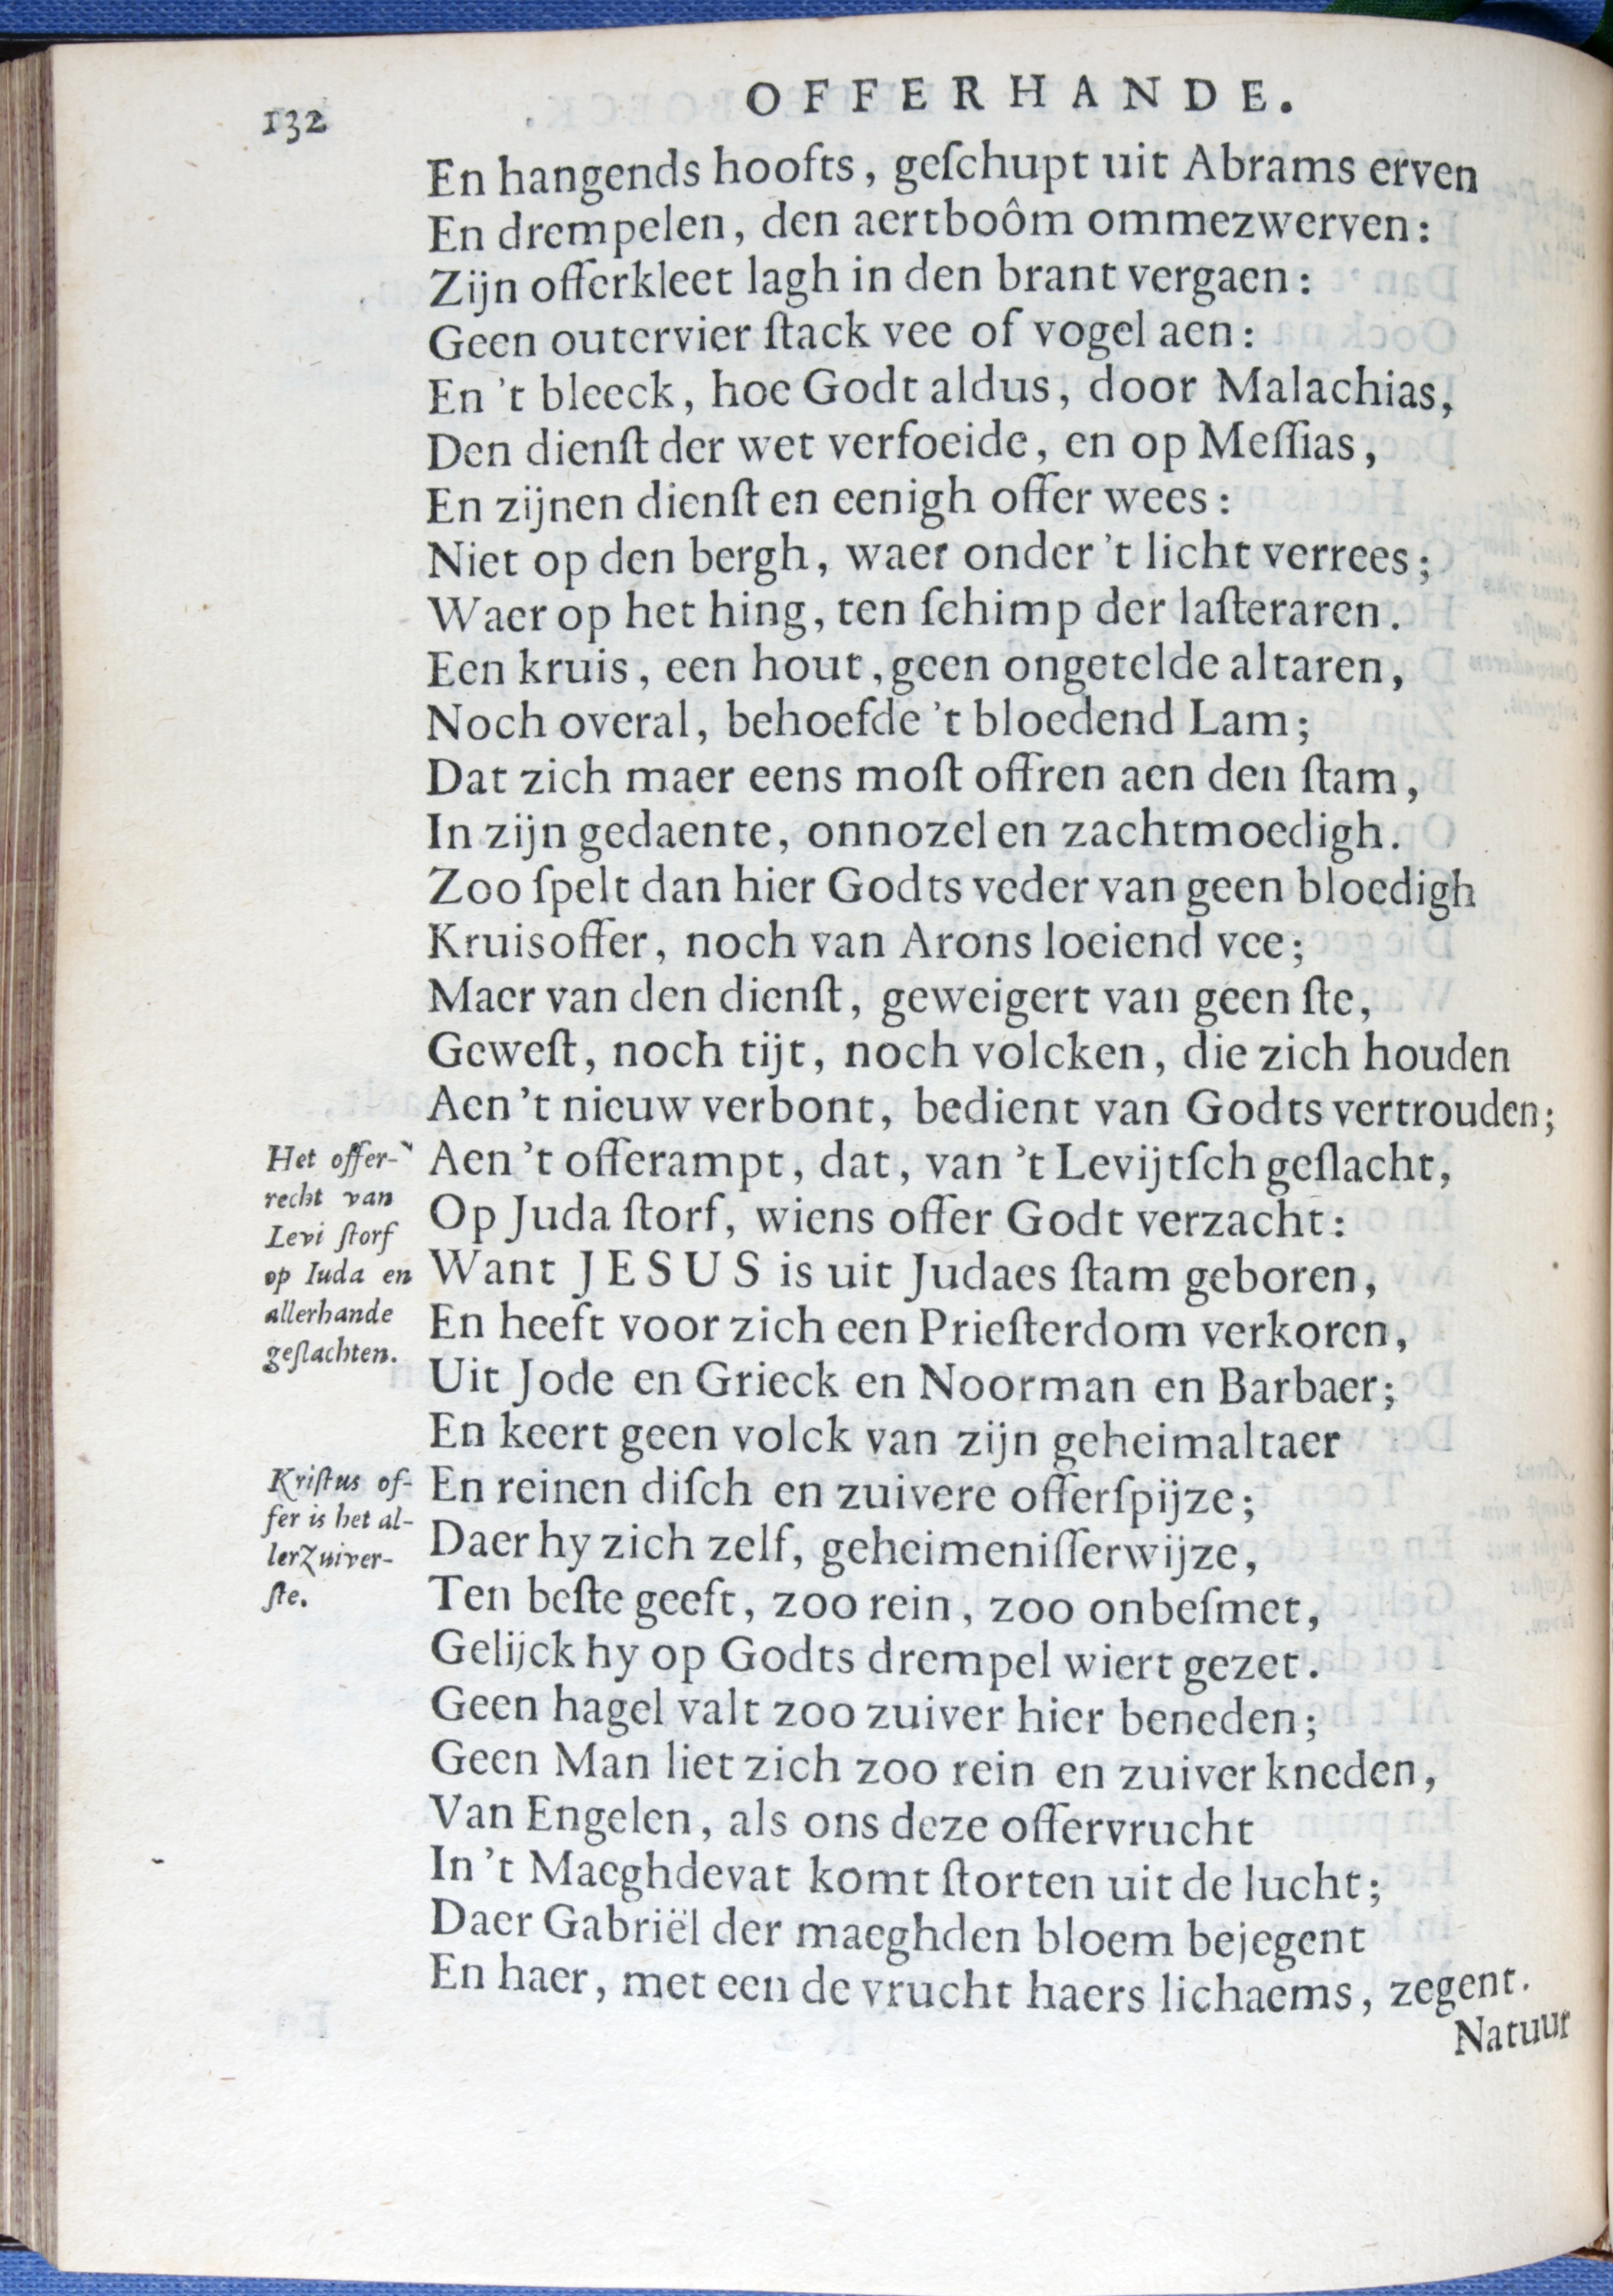 132
OFFERHANDE.
En hangends hoofts, geſchupt uit Abrams erven
En drempelen, den aertboôm ommezwerven:
Zijn offerkleet lagh in den brant vergaen:
Geen outervier ſtack vee of vogel aen:
En 't bleeck, hoe Godt aldus, door Malachias,
Den dienſt der wet verfoeide, en op Meſſias,
En zijnen dienſt en eenigh offer wees:
Niet op den bergh, waer onder 't licht verrees;
Waer op het hing, ten ſchimp der laſteraren.
Een kruis, een hout, geen ongetelde altaren,
Noch overal, behoefde 't bloedend Lam;
Dat zich maer eens moſt offren aen den ſtam,
In zijn gedaente, onnozel en zachtmoedigh.
Zoo ſpelt dan hier Godts veder van geen bloedigh
Kruisoffer, noch van Arons loeiend vee;
Maer van den dienſt, geweigert van geen ſte,
Geweſt, noch tijt, noch volcken, die zich houden
Aen 't nieuw verbont, bedient van Godts vertrouden;
Aen 't offerampt, dat, van 't Levijtſch geſlacht,
Op Juda ſtorf, wiens offer Godt verzacht:
Want JESUS is uit Judaes ſtam geboren,
En heeft voor zich een Prieſterdom verkoren,
Uit Jode en Grieck en Noorman en Barbaer;
En keert geen volck van zijn geheimaltaer
En reinen diſch en zuivere offerſpijze;
Daer hy zich zelf, geheimeniſſerwijze,
Ten beſte geeft, zoo rein, zoo onbeſmet,
Gelijck hy op Godts drempel wiert gezet.
Geen hagel valt zoo zuiver hier beneden;
Geen Man liet zich zoo rein en zuiver kneden,
Van Engelen, als ons deze offervrucht
In 't Maeghdevat komt ſtorten uit de lucht;
Daer Gabriël der maeghden bloem bejegent
En haer, met een de vrucht haers lichaems, zegent.
Natuur
Het offer-
recht van
Levi ſtorf
op Iuda en
allerhande
geſlachten.
Kriſtus of-
fer is het al-
lerzuiver-
ſte.